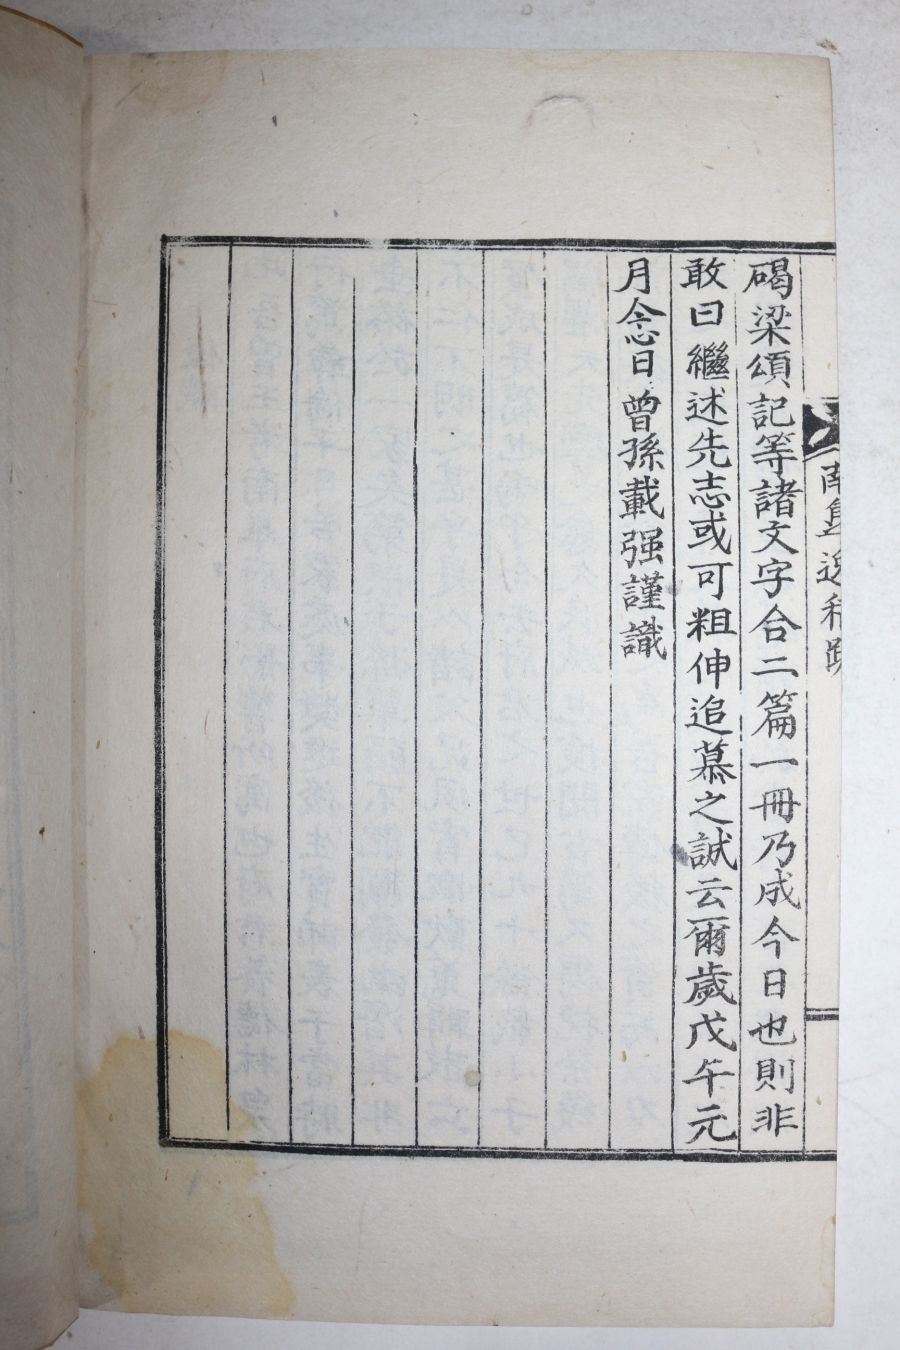 碣梁頌記等諸文字合二篇一冊乃成今日也則非
敢曰繼述先志或可粗伸追慕之誠云爾歲戊午元
月念日曾孫載强謹識
南皐逸稿跋